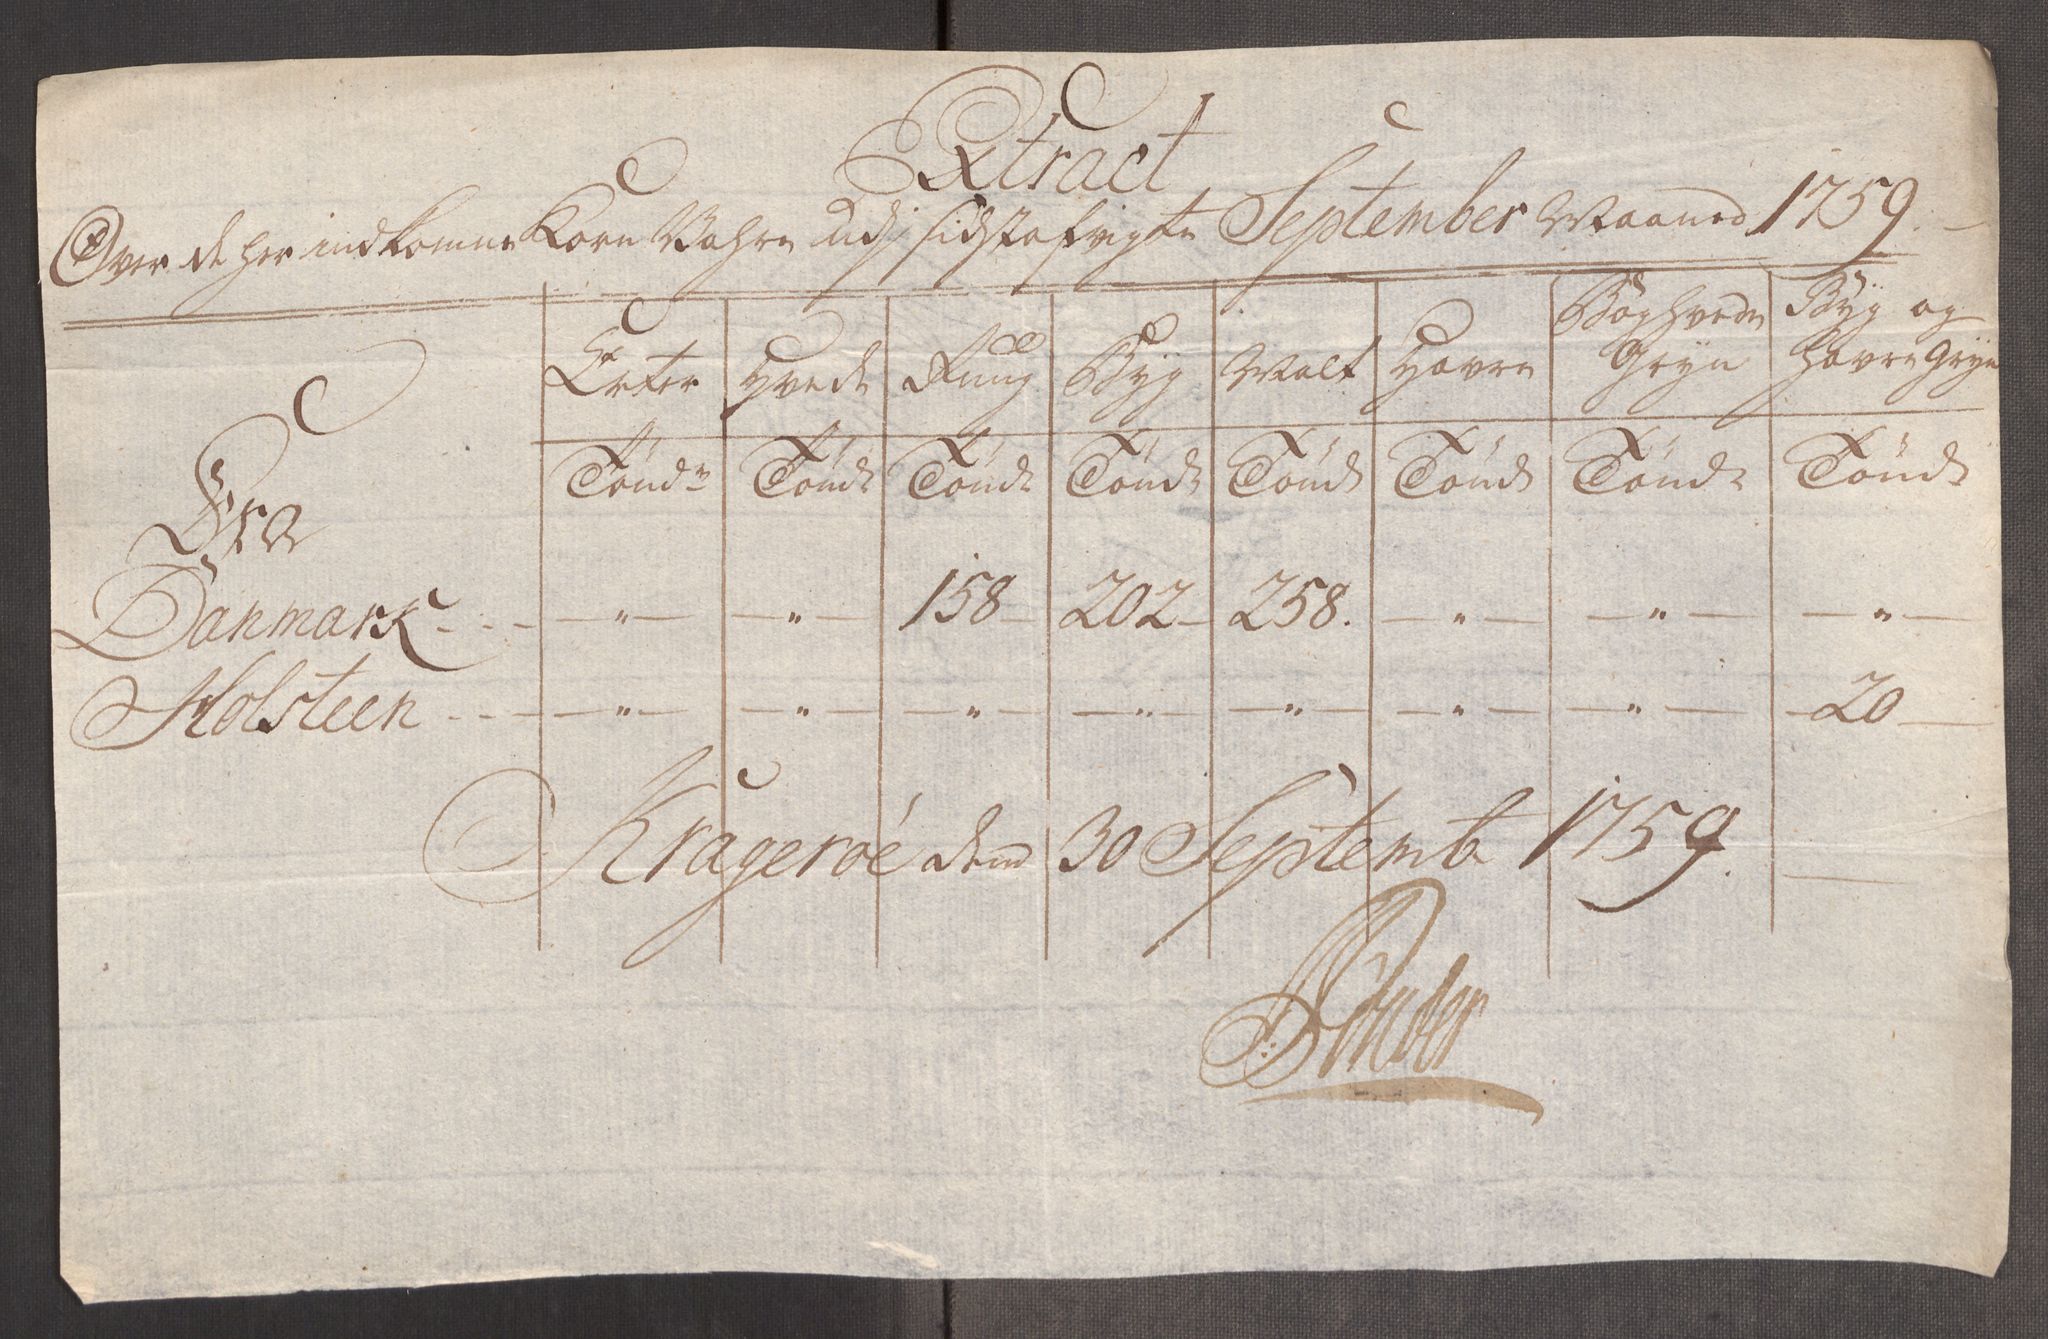 Extract
Over de her indkomne Korn Wahre udj sidstafvigte September Maaned 1759.
Erter Hvede Rug Byg Malt Havre Boghvede Gryn Byg og Havre Gryn
Tønd Tønd Tønd Tønd Tønd Tønd Tønd Tønd
Fra
Danmark - - - — " — — " — 158 — 202 — 258. — " — — " — — " —
Holsteen - - - — " — — " — — " — — " — — " — — " — — " — — 20 —
Krageröe den 30 Septemb 1759.